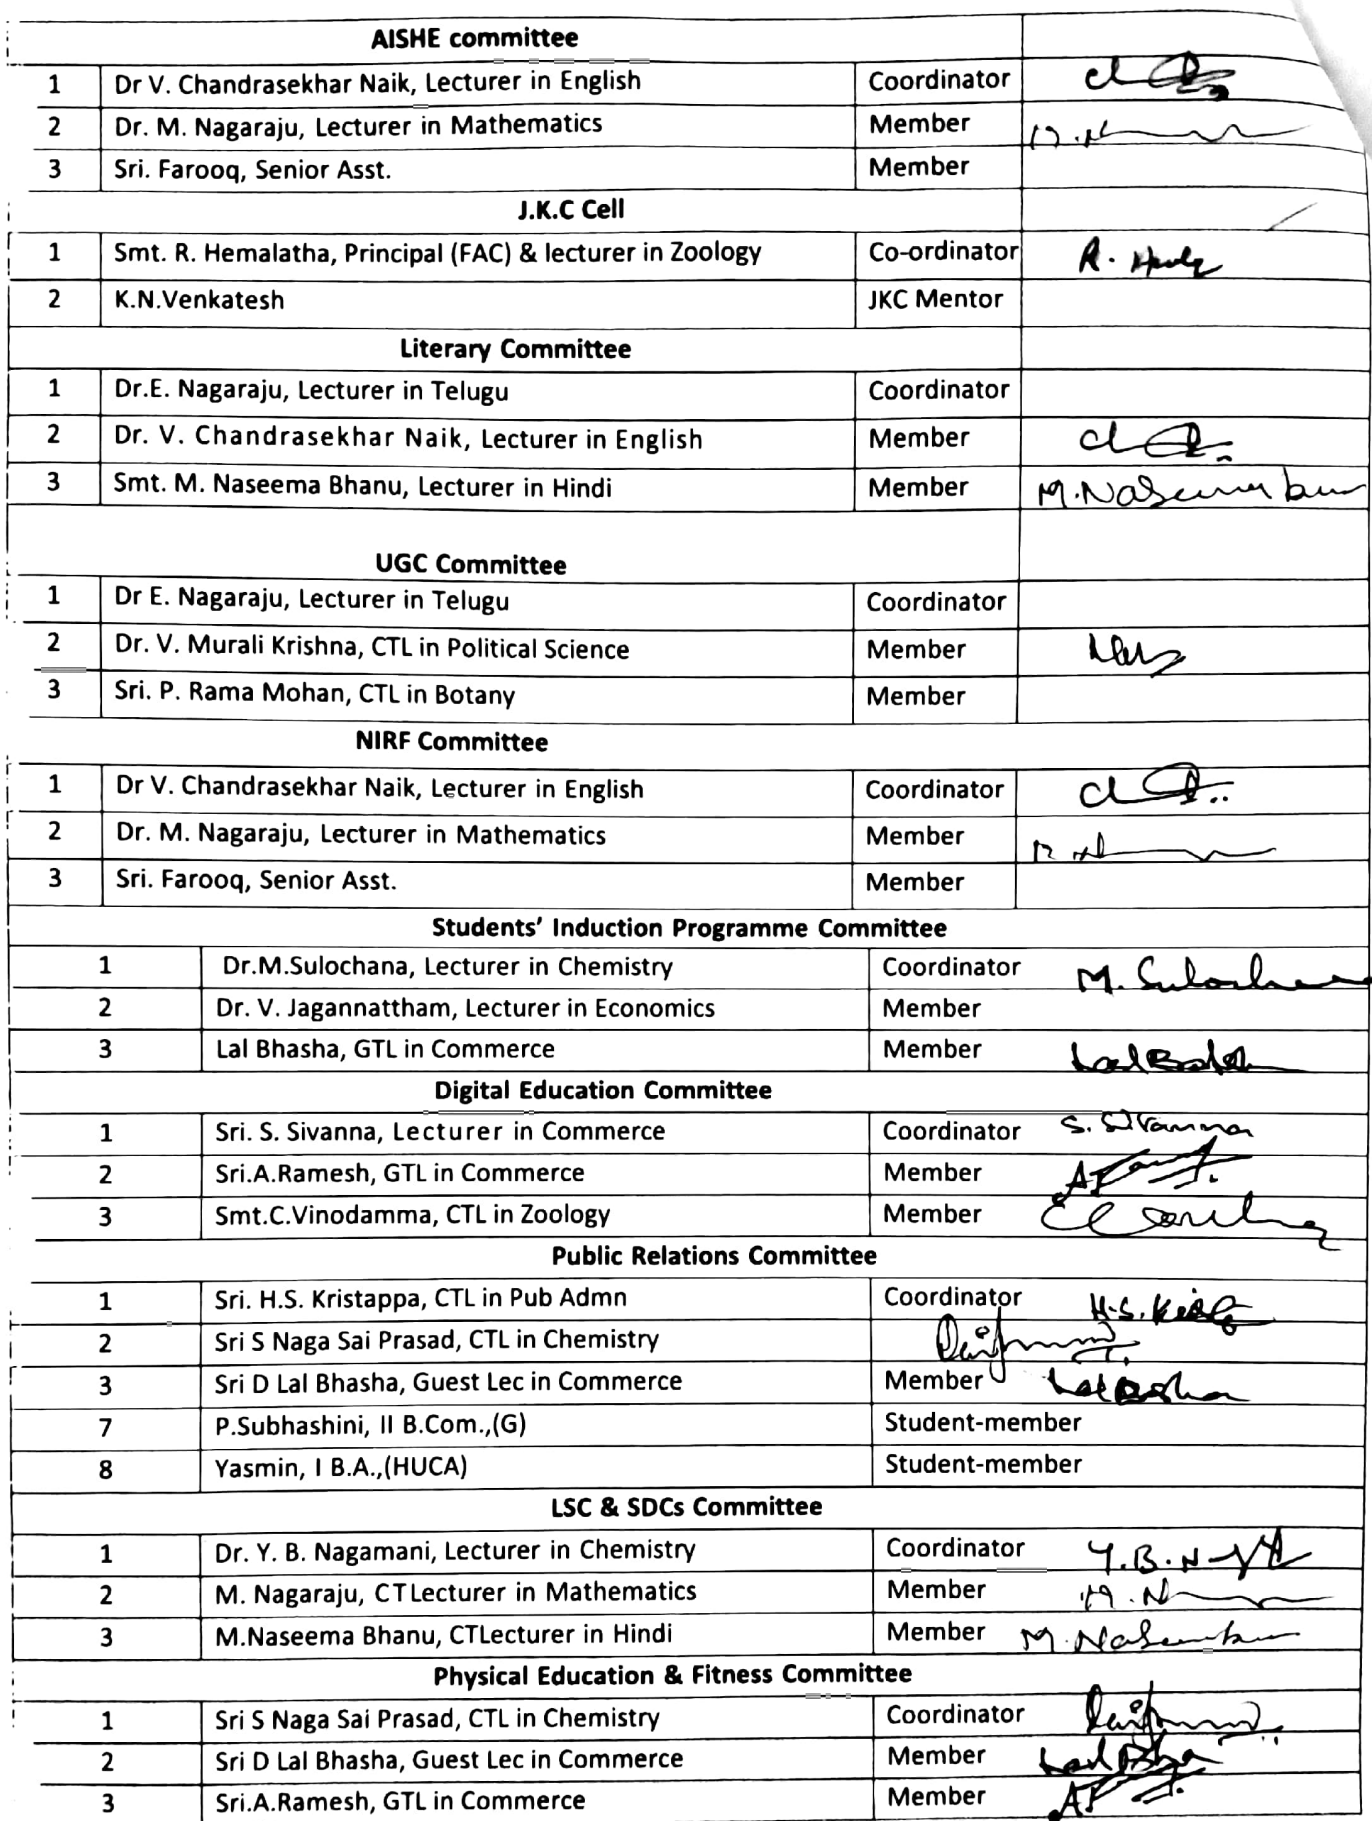 AISHE committee
1 Dr V. Chandrasekhar Naik, Lecturer in English Coordinator
2 Dr. M. Nagaraju, Lecturer in Mathematics Member
3 Sri. Farooq, Senior Asst. Member
J.K.C Cell
1 Smt. R. Hemalatha, Principal (FAC) & lecturer in Zoology Co-ordinator
2 K.N.Venkatesh JKC Mentor
Literary Committee
1 Dr.E. Nagaraju, Lecturer in Telugu Coordinator
2 Dr. V. Chandrasekhar Naik, Lecturer in English Member
3 Smt. M. Naseema Bhanu, Lecturer in Hindi Member
UGC Committee
1 Dr E. Nagaraju, Lecturer in Telugu Coordinator
2 Dr. V. Murali Krishna, CTL in Political Science Member
3 Sri. P. Rama Mohan, CTL in Botany Member
NIRF Committee
1 Dr V. Chandrasekhar Naik, Lecturer in English Coordinator
2 Dr. M. Nagaraju, Lecturer in Mathematics Member
3 Sri. Farooq, Senior Asst. Member
Students' Induction Programme Committee
1 Dr.M.Sulochana, Lecturer in Chemistry Coordinator
2 Dr. V. Jagannattham, Lecturer in Economics Member
3 Lal Bhasha, GTL in Commerce Member
Digital Education Committee
1 Sri. S. Sivanna, Lecturer in Commerce Coordinator S. Sivanna
2 Sri.A.Ramesh, GTL in Commerce Member
3 Smt.C.Vinodamma, CTL in Zoology Member
Public Relations Committee
1 Sri. H.S. Kristappa, CTL in Pub Admn Coordinator
2 Sri S Naga Sai Prasad, CTL in Chemistry
3 Sri D Lal Bhasha, Guest Lec in Commerce Member
7 P.Subhashini, II B.Com.,(G) Student-member
8 Yasmin, I B.A.,(HUCA) Student-member
LSC & SDCs Committee
1 Dr. Y. B. Nagamani, Lecturer in Chemistry Coordinator
2 M. Nagaraju, CTLecturer in Mathematics Member
3 M.Naseema Bhanu, CTLecturer in Hindi Member
Physical Education & Fitness Committee
1 Sri S Naga Sai Prasad, CTL in Chemistry Coordinator
2 Sri D Lal Bhasha, Guest Lec in Commerce Member
3 Sri.A.Ramesh, GTL in Commerce Member